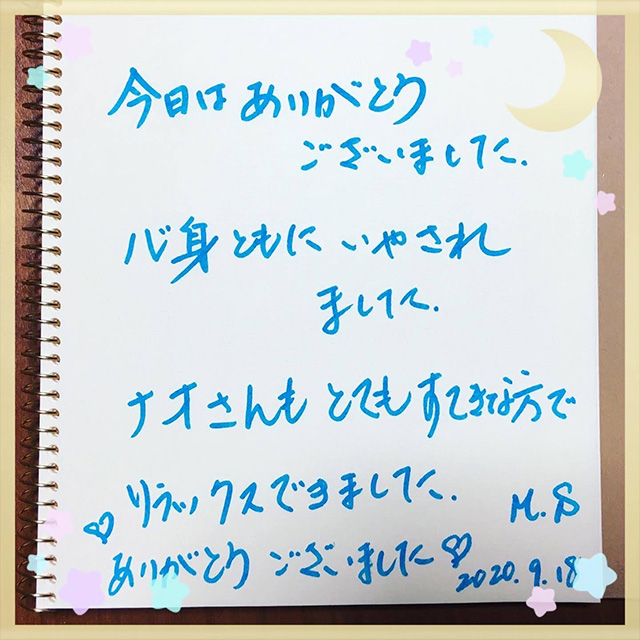 今日は ありがとう
ございました.
心身ともに いやされ
ました.
ナオさんも とてもすてきな方で
リラックスできました.
M.S
ありがとう ございました
2020.9.18